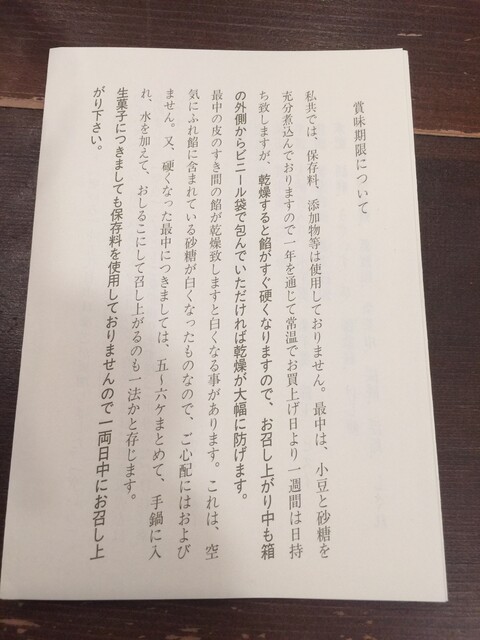 賞味期限について
私共では、保存料、添加物等は使用しておりません。最中は、小豆と砂糖を
充分煮込んでおりますので一年を通じて常温でお買上げ日より一週間は日持
ち致しますが、乾燥すると餡がすぐ硬くなりますので、お召し上がり中も箱
の外側からビニール袋で包んでいただければ乾燥が大幅に防げます。
最中の皮のすき間の餡が乾燥致しますと白くなる事があります。これは、空
気にふれ餡に含まれている砂糖が白くなったものなので、ご心配にはおよび
ません。又、硬くなった最中につきましては、五〜六ケまとめて、手鍋に入
れ、水を加えて、おしるこにして召し上がるのも一法かと存じます。
生菓子につきましても保存料を使用しておりませんので一両日中にお召し上
がり下さい。